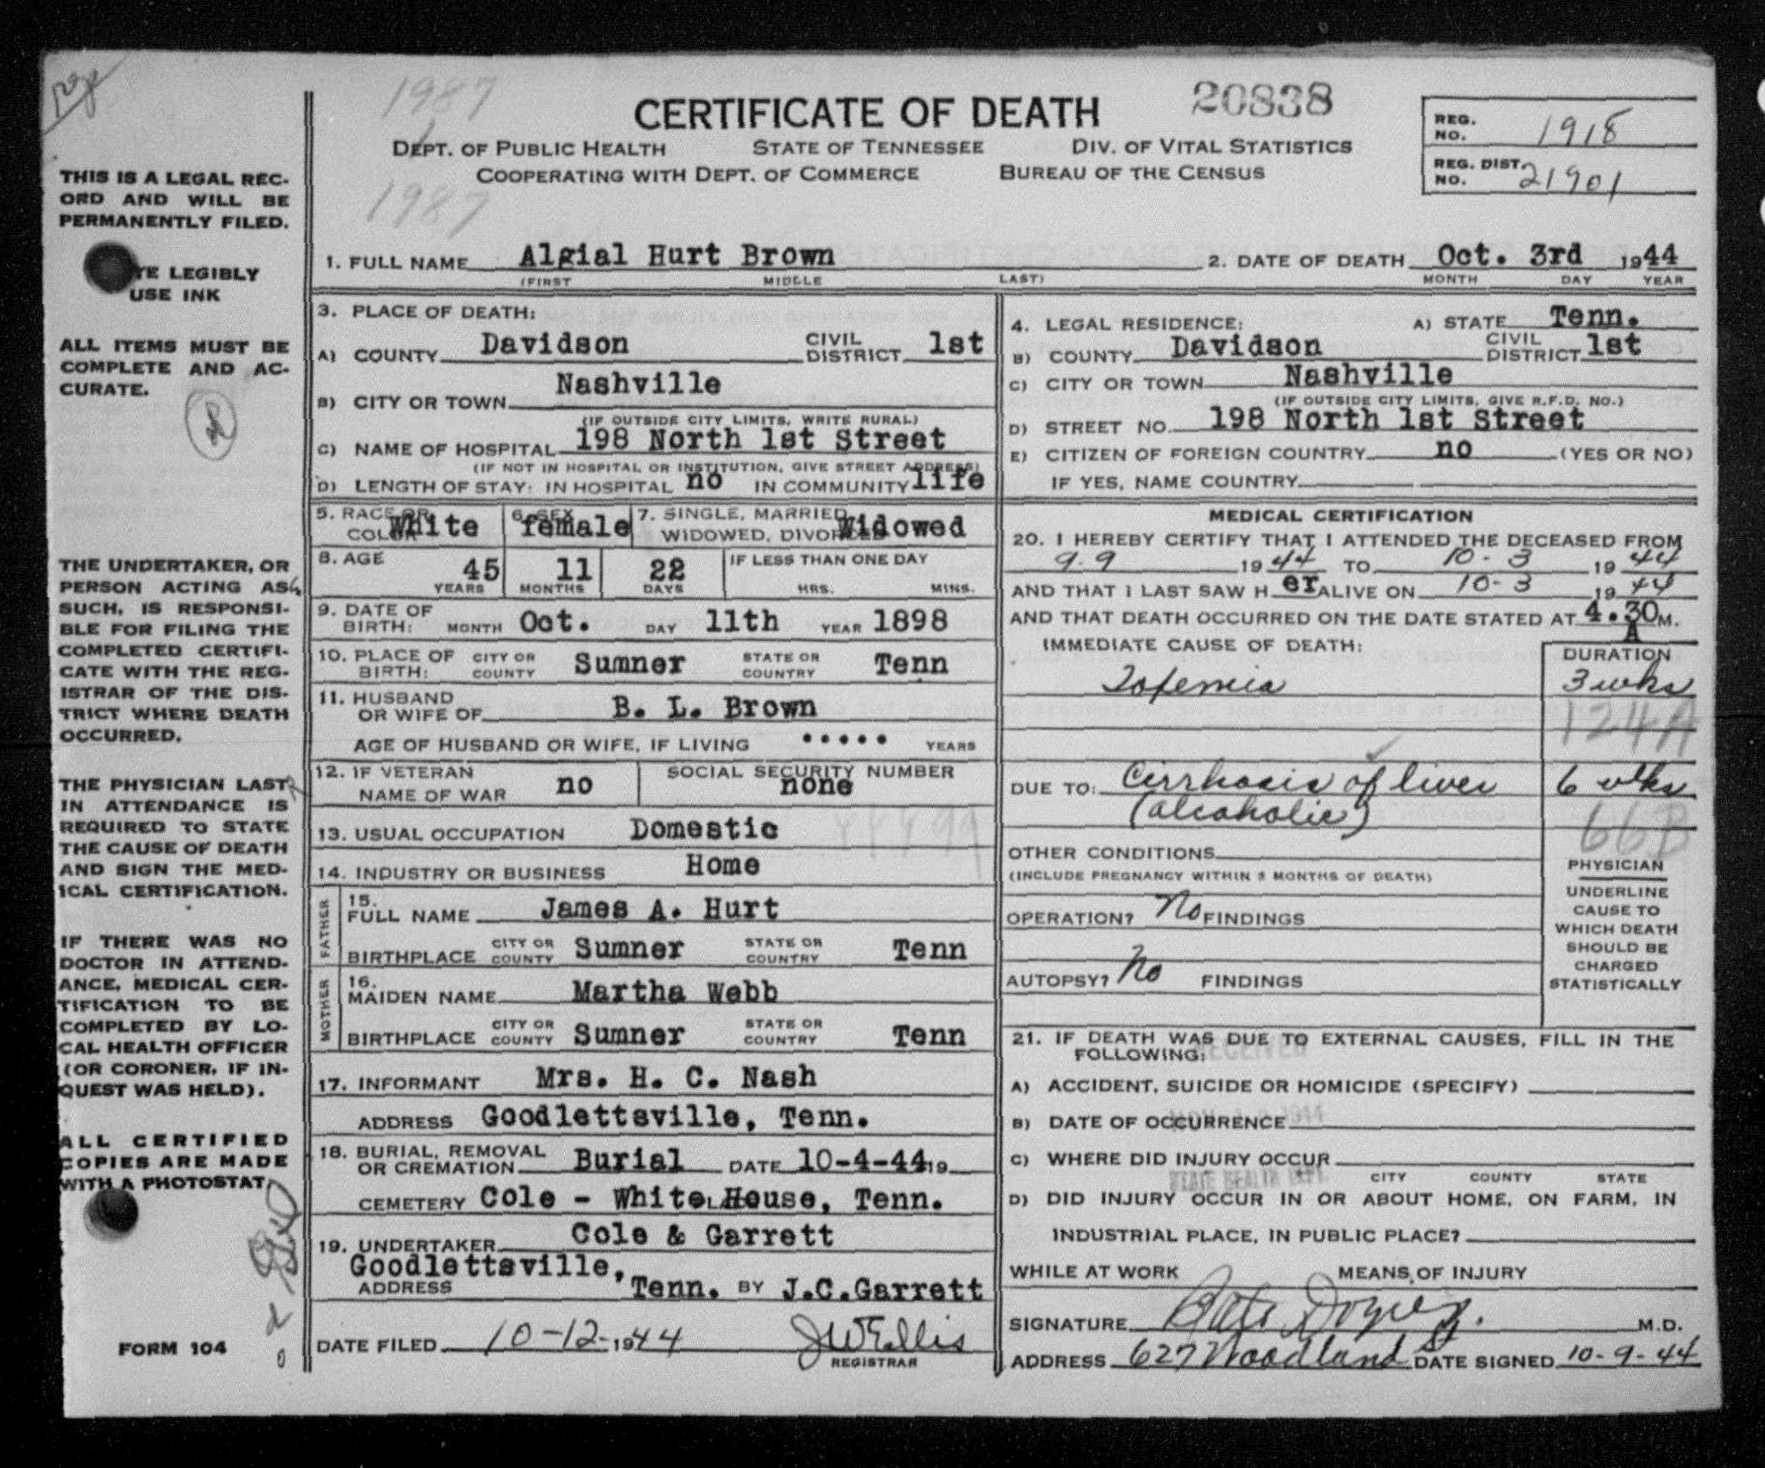 1987
20838
CERTIFICATE OF DEATH
DEPT. OF PUBLIC HEALTH STATE OF TENNESSEE DIV. OF VITAL STATISTICS
COOPERATING WITH DEPT. OF COMMERCE BUREAU OF THE CENSUS
1987
REG. NO. 1918
REG. DIST. NO. 21901
THIS IS A LEGAL REC-
ORD AND WILL BE
PERMANENTLY FILED.
TE LEGIBLY
USE INK
ALL ITEMS MUST BE
COMPLETE AND AC-
CURATE.
THE UNDERTAKER, OR
PERSON ACTING AS
SUCH, IS RESPONSI-
BLE FOR FILING THE
COMPLETED CERTIFI-
CATE WITH THE REG-
ISTRAR OF THE DIS-
TRICT WHERE DEATH
OCCURRED.
THE PHYSICIAN LAST
IN ATTENDANCE IS
REQUIRED TO STATE
THE CAUSE OF DEATH
AND SIGN THE MED-
ICAL CERTIFICATION.
IF THERE WAS NO
DOCTOR IN ATTEND-
ANCE, MEDICAL CER-
TIFICATION TO BE
COMPLETED BY LO-
CAL HEALTH OFFICER
(OR CORONER, IF IN-
QUEST WAS HELD).
ALL CERTIFIED
COPIES ARE MADE
WITH A PHOTOSTAT
FORM 104
1. FULL NAME Algial Hurt Brown 2. DATE OF DEATH Oct. 3rd 1944
(FIRST MIDDLE LAST) MONTH DAY YEAR
3. PLACE OF DEATH:
A) COUNTY Davidson CIVIL DISTRICT 1st
B) CITY OR TOWN Nashville
(IF OUTSIDE CITY LIMITS, WRITE RURAL)
C) NAME OF HOSPITAL 198 North 1st Street
(IF NOT IN HOSPITAL OR INSTITUTION, GIVE STREET ADDRESS)
D) LENGTH OF STAY: IN HOSPITAL no IN COMMUNITY life
5. RACE OR COLOR White 6. SEX female 7. SINGLE, MARRIED, WIDOWED, DIVORCED Widowed
8. AGE 45 YEARS 11 MONTHS 22 DAYS IF LESS THAN ONE DAY HRS. MINS.
9. DATE OF BIRTH: MONTH Oct. DAY 11th YEAR 1898
10. PLACE OF BIRTH: CITY OR COUNTY Sumner STATE OR COUNTRY Tenn
11. HUSBAND OR WIFE OF B. L. Brown
AGE OF HUSBAND OR WIFE, IF LIVING ..... YEARS
12. IF VETERAN NAME OF WAR no SOCIAL SECURITY NUMBER none
13. USUAL OCCUPATION Domestic
14. INDUSTRY OR BUSINESS Home
FATHER
15. FULL NAME James A. Hurt
BIRTHPLACE CITY OR COUNTY Sumner STATE OR COUNTRY Tenn
MOTHER
16. MAIDEN NAME Martha Webb
BIRTHPLACE CITY OR COUNTY Sumner STATE OR COUNTRY Tenn
17. INFORMANT Mrs. H. C. Nash
ADDRESS Goodlettsville, Tenn.
18. BURIAL, REMOVAL OR CREMATION Burial DATE 10-4-44 19
CEMETERY Cole - White House, Tenn.
19. UNDERTAKER Cole & Garrett
ADDRESS Goodlettsville, Tenn. BY J.C.Garrett
DATE FILED 10-12-1944 JWEllis
REGISTRAR
4. LEGAL RESIDENCE: A) STATE Tenn.
B) COUNTY Davidson CIVIL DISTRICT 1st
C) CITY OR TOWN Nashville
(IF OUTSIDE CITY LIMITS, GIVE R.F.D. NO.)
D) STREET NO. 198 North 1st Street
E) CITIZEN OF FOREIGN COUNTRY no (YES OR NO)
IF YES, NAME COUNTRY
MEDICAL CERTIFICATION
20. I HEREBY CERTIFY THAT I ATTENDED THE DECEASED FROM
9-9 1944 TO 10-3 1944
AND THAT I LAST SAW H er ALIVE ON 10-3 1944
AND THAT DEATH OCCURRED ON THE DATE STATED AT 4.30 A M.
IMMEDIATE CAUSE OF DEATH: DURATION
Toxemia 3 wks
124A
DUE TO: Cirrhosis of liver 6 wks
(alcoholic)
66B
OTHER CONDITIONS
(INCLUDE PREGNANCY WITHIN 3 MONTHS OF DEATH)
OPERATION? No FINDINGS
AUTOPSY? No FINDINGS
PHYSICIAN
UNDERLINE
CAUSE TO
WHICH DEATH
SHOULD BE
CHARGED
STATISTICALLY
21. IF DEATH WAS DUE TO EXTERNAL CAUSES, FILL IN THE
FOLLOWING:
RECEIVED
A) ACCIDENT, SUICIDE OR HOMICIDE (SPECIFY)
B) DATE OF OCCURRENCE
1944
C) WHERE DID INJURY OCCUR
CITY COUNTY STATE
STATE HEALTH DEPT.
D) DID INJURY OCCUR IN OR ABOUT HOME, ON FARM, IN
INDUSTRIAL PLACE, IN PUBLIC PLACE?
WHILE AT WORK MEANS OF INJURY
SIGNATURE M.D.
ADDRESS 627 Woodland DATE SIGNED 10-9-44